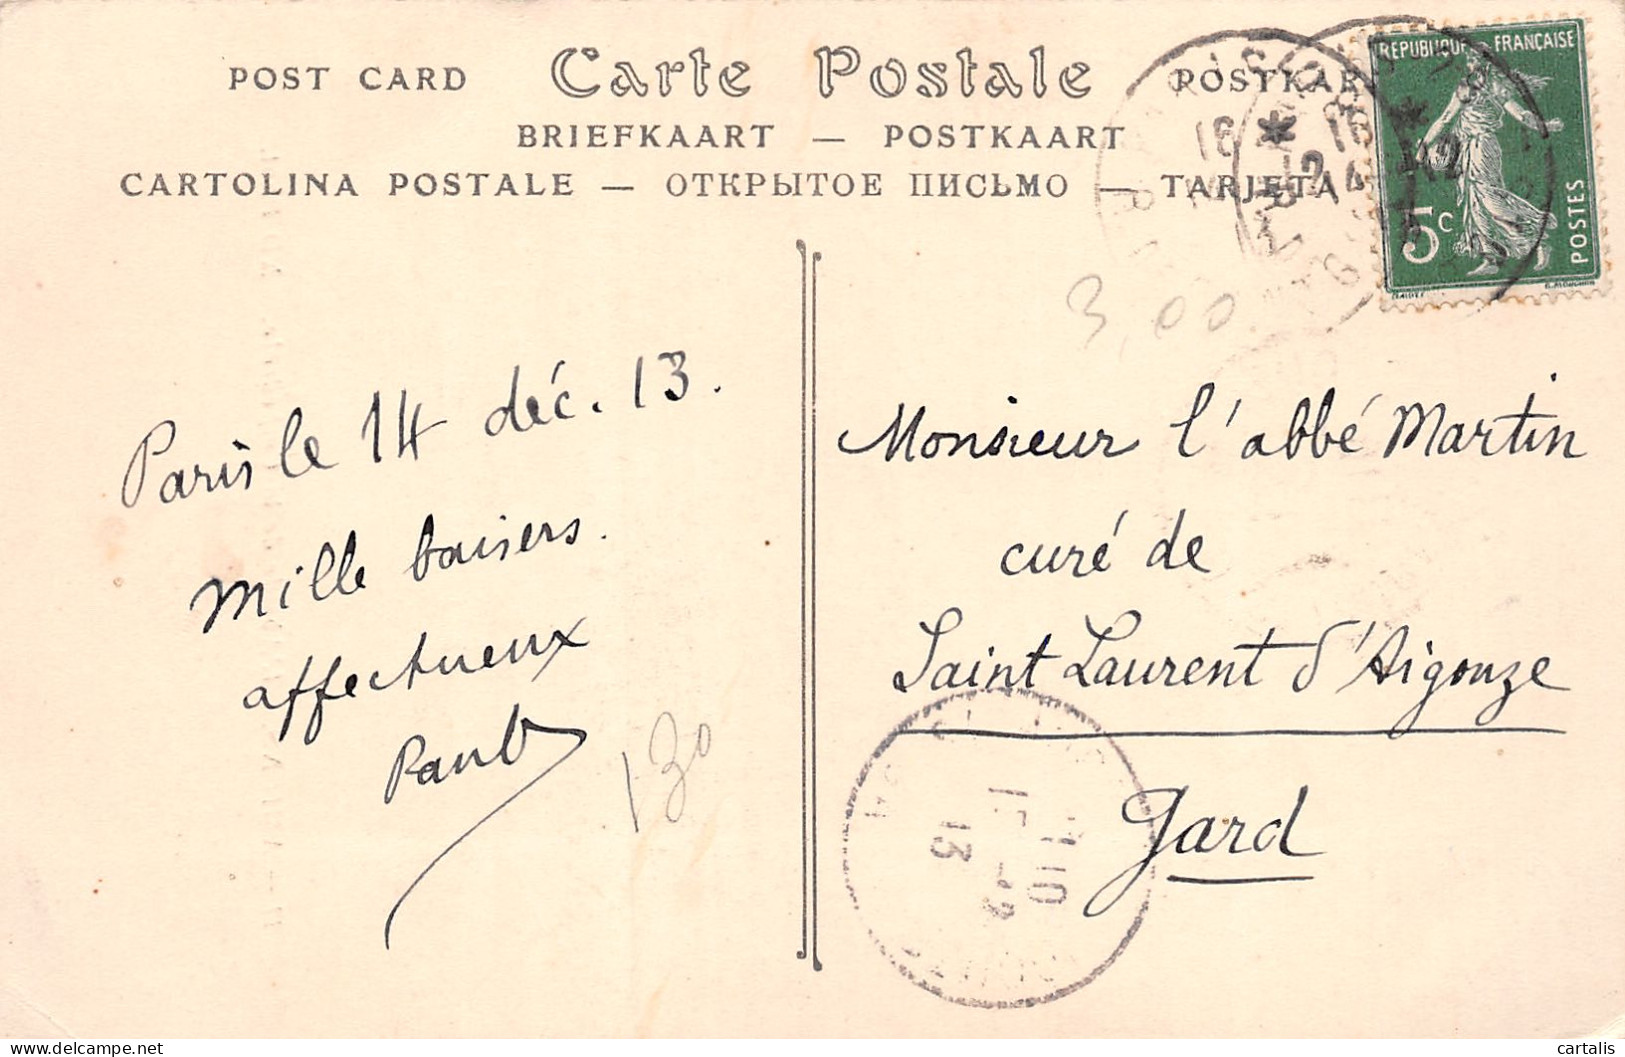 POST CARD Carte Postale POSTKAR
BRIEFKAART — POSTKAART
CARTOLINA POSTALE — ОТКРЫТОЕ ПИСЬМО — TARJETA
REPUBLIQUE FRANÇAISE
5c
POSTES
3,00
Paris le 14 déc. 13.
Mille baisers.
affectueux
Paul
130
Monsieur l'abbé Martin
curé de
Saint Laurent d'Aigouze
Gard
7 10
13
delcampe.net
cartalis